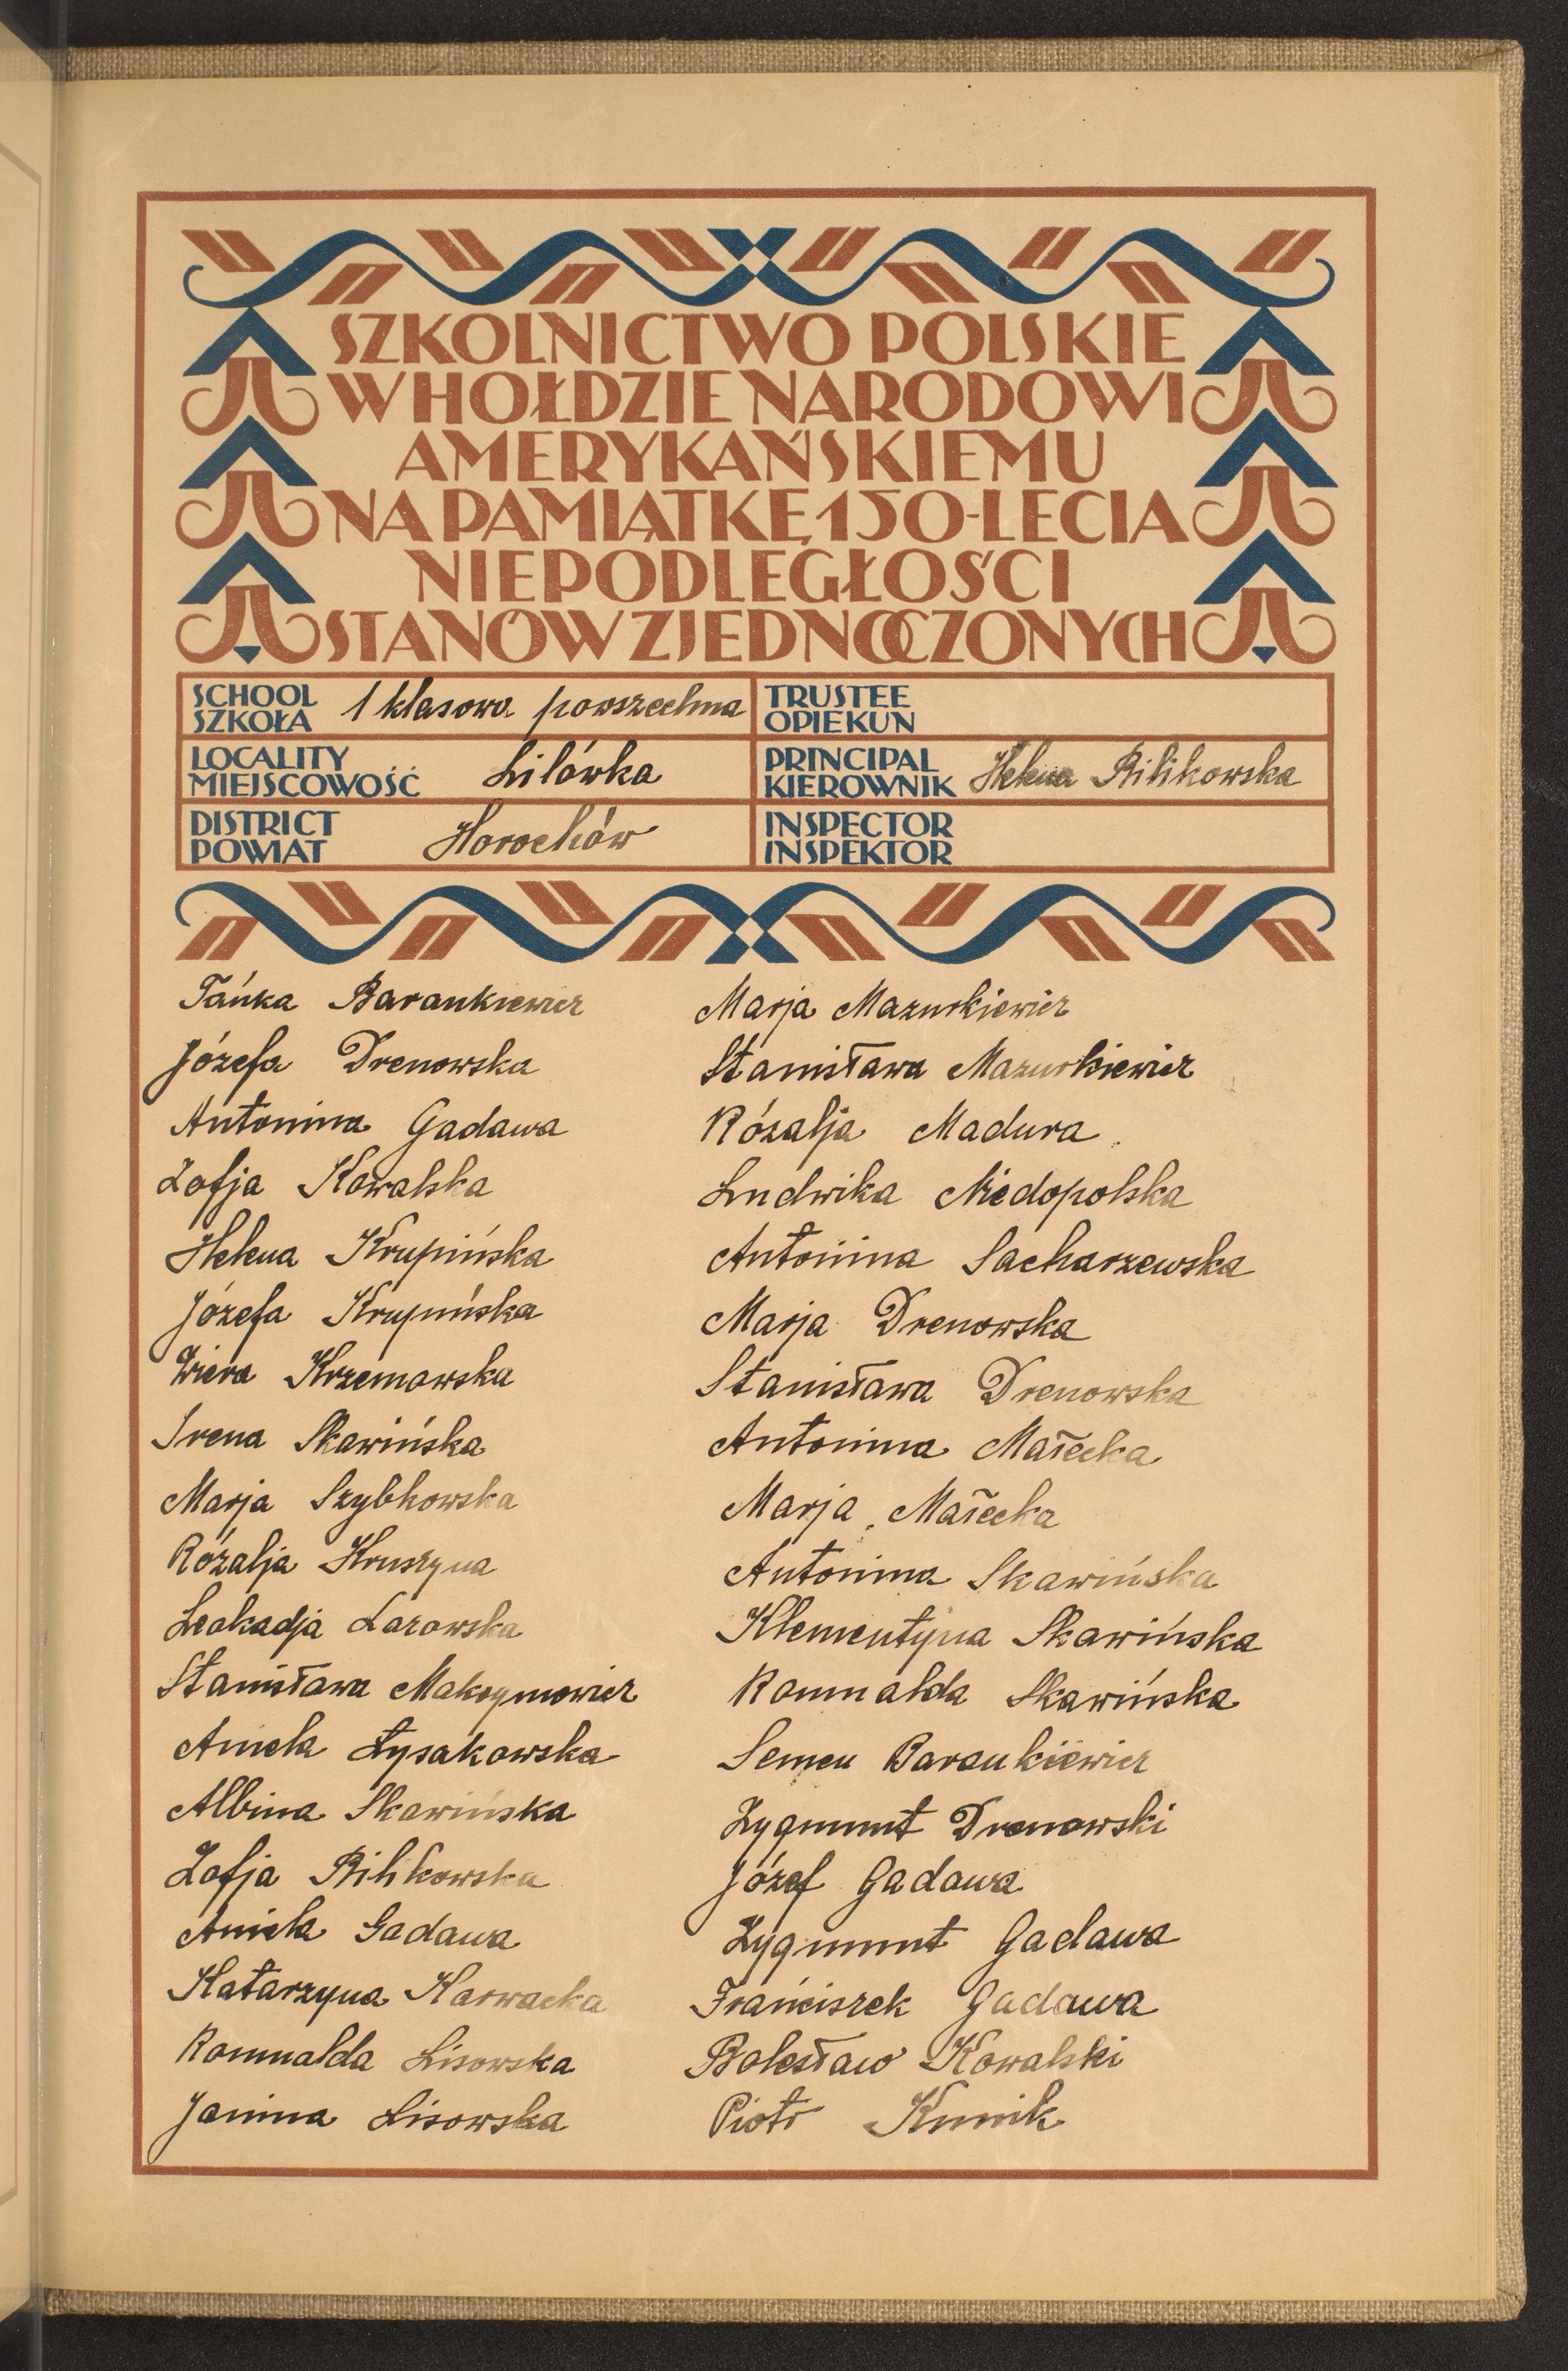 SZKOLNICTWO POLSKIE
W HOŁDZIE NARODOWI
AMERYKAŃSKIEMU
NA PAMIĄTKĘ 150-LECIA
NIEPODLEGŁOŚCI
STANÓW ZJEDNOCZONYCH
SCHOOL
SZKOŁA 1 klasowa powszechna
TRUSTEE
OPIEKUN
LOCALITY
MIEJSCOWOŚĆ Lilówka
PRINCIPAL
KIEROWNIK Helena Bilikowska
DISTRICT
POWIAT Horochów
INSPECTOR
INSPEKTOR
Tańka Barankiewicz
Józefa Drenowska
Antonina Gadawa
Zofja Kowalska
Helena Krupińska
Józefa Krupińska
Wiera Krzemowska
Irena Skawińska
Marja Szybkowska
Rózalja Kruszyna
Leokadja Lazowska
Stanisława Maksymowicz
Aniela Łysakowska
Albina Skawińska
Zofja Bilikowska
Aniela Gadawa
Katarzyna Karwacka
Romualda Lisowska
Janina Lisowska
Marja Mazurkiewicz
Stanisława Mazurkiewicz
Rózalja Madura
Ludwika Niedopolska
Antonina Sacharzewska
Marja Drenowska
Stanisława Drenowska
Antonina Małecka
Marja Małecka
Antonina Skawińska
Klementyna Skawińska
Romualda Skawińska
Semen Barankiewicz
Zygmunt Drenowski
Józef Gadawa
Zygmunt Gadawa
Franciszek Gadawa
Bolesław Kowalski
Piotr Kunik